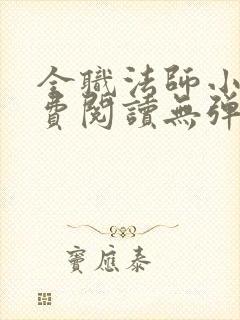 全職法師小
費閱讀無彈
竇應泰